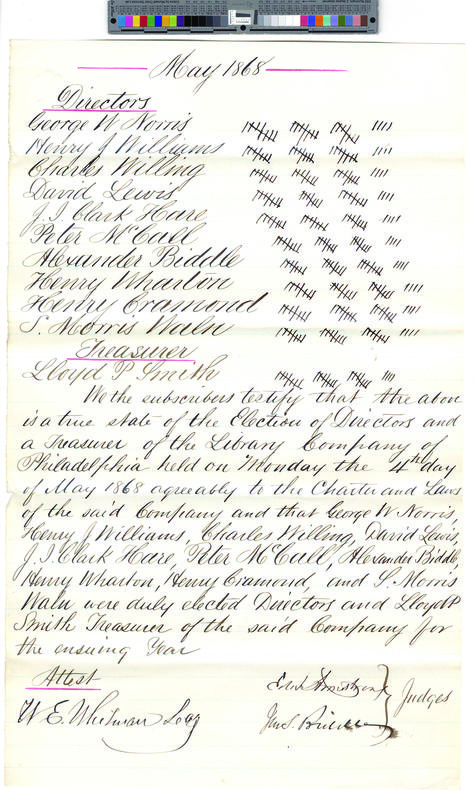 May 1868
Directors
George W Norris
Henry J Williams
Charles Willing
David Lewis
J. I. Clark Hare
Peter McCall
Alexander Biddle
Henry Wharton
Henry Cramond
S. Morris Waln
Treasurer
Lloyd P Smith
We the subscribers testify that the above
is a true state of the Election of Directors and
a Treasurer of the Library Company of
Philadelphia held on Monday the 4th day
of May 1868 agreeably to the Charter and Laws
of the said Company and that George W Norris,
Henry J Williams, Charles Willing, David Lewis,
J. I. Clark Hare, Peter McCall, Alexander Biddle,
Henry Wharton, Henry Cramond, and S. Morris
Waln were duly elected Directors and Lloyd P
Smith Treasurer of the said Company for
the ensuing Year
Attest
Armstrong
Judges
W. E. Whitman Secy